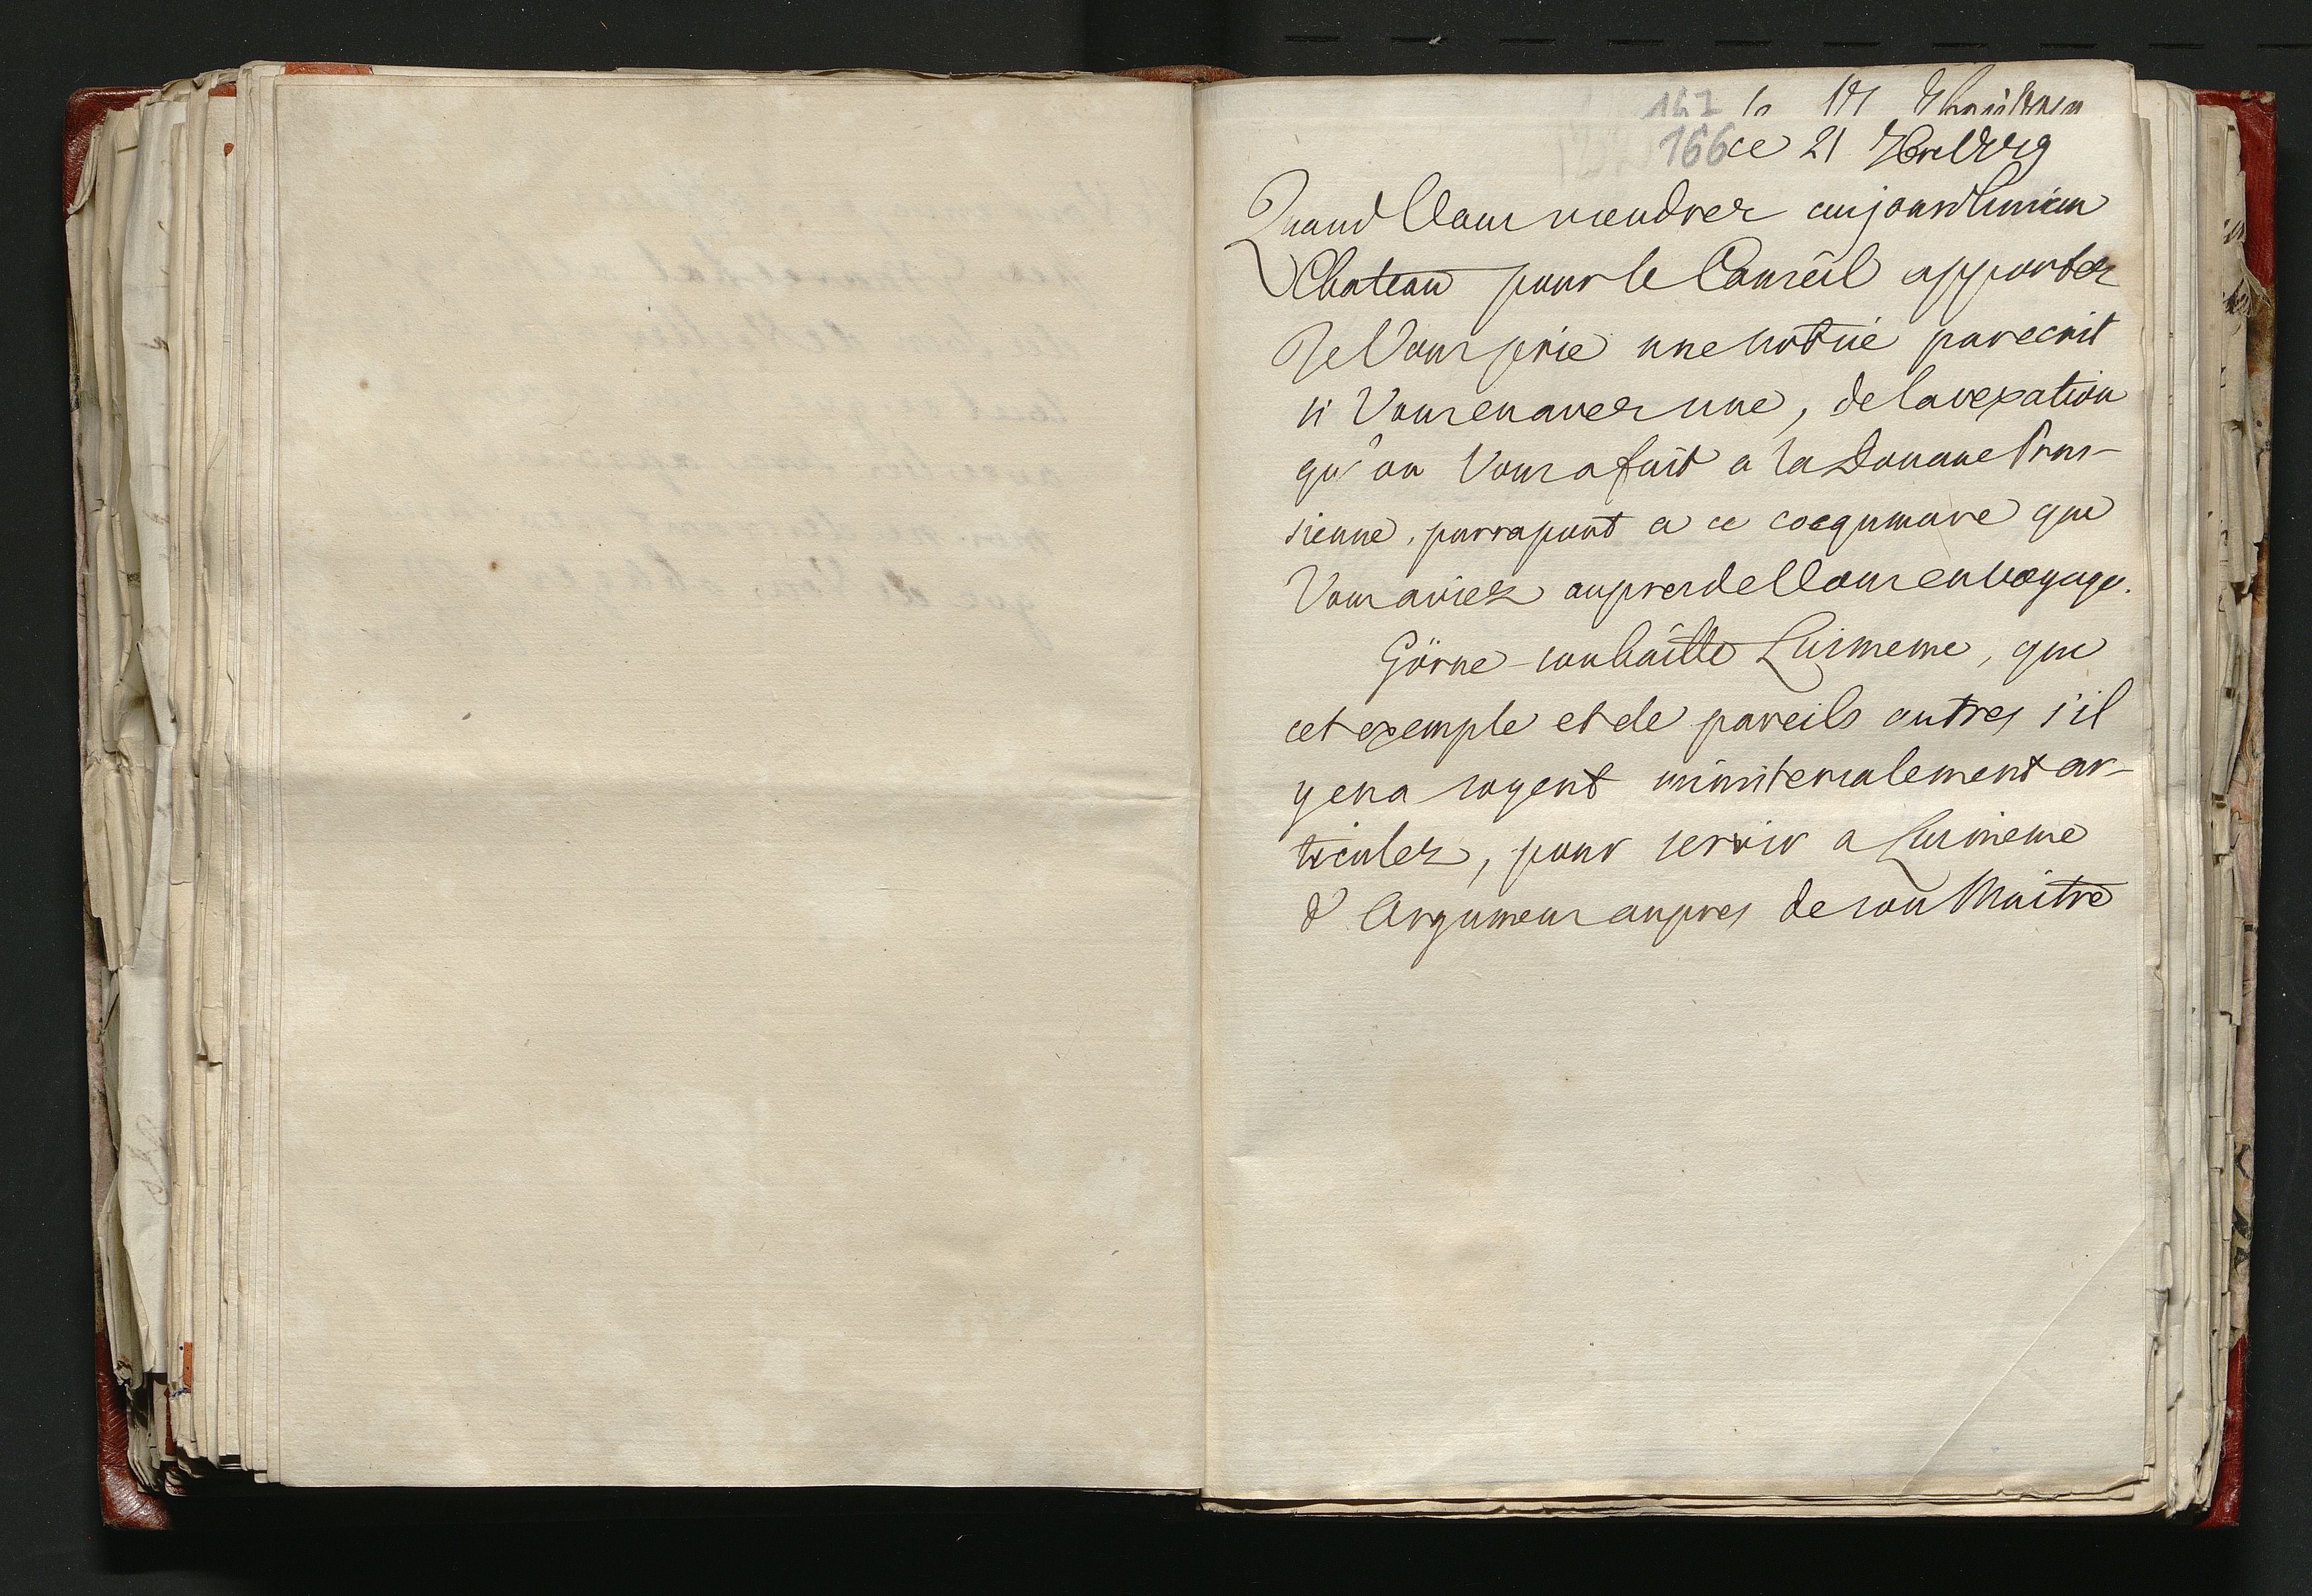 167
166 ce 21
Quand Vous viendrez aujourdhuiau
Chateau pour le Conseil apportez
Je Vous prie une notiïe parecrit
si Vous en avez une, de la vexation
qu'on Vous a fait a la Douane Prus-
sienne, parraport a ce coequmare que
Vous aviez aupres de Vous en Voyage.
Görne souhaitte Luimeme, que
cet exemple et de pareils autres s'il
y en a soyent ministerialement ar-
ticulez, pour servir a Luimeme
d'Argumens aupres de son Maitre